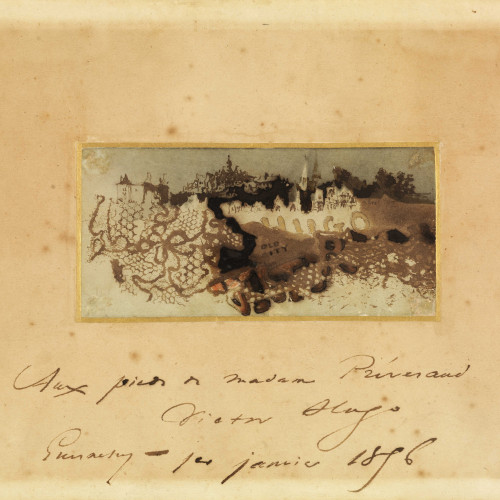 HUGO
OLD
CITY
Aux pieds de madame Préveraud
Victor Hugo
Guernesey – 1er janvier 1856